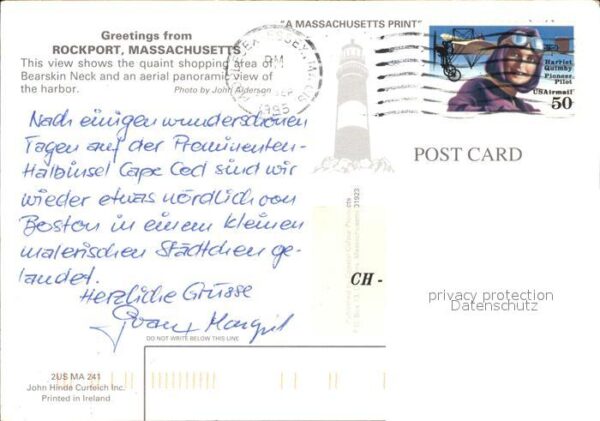 "A MASSACHUSETTS PRINT"
Greetings from
ROCKPORT, MASSACHUSETTS
This view shows the quaint shopping area of
Bearskin Neck and an aerial panoramic view of
the harbor.
Photo by John Alderson
PM
SEP
1995
Harriet
Quimby
Pioneer
Pilot
USAirmail
50
POST CARD
Nach einigen wunderschönen
Tagen auf der Prominenten-
Halbinsel Cape Cod sind wir
wieder etwas nördlich von
Boston in einem kleinen
malerischen Städtchen ge-
landet.
Herzliche Grüsse
Margrit
CH -
privacy protection
Datenschutz
DO NOT WRITE BELOW THIS LINE
2US MA 241
John Hinde Curteich Inc.
Printed in Ireland